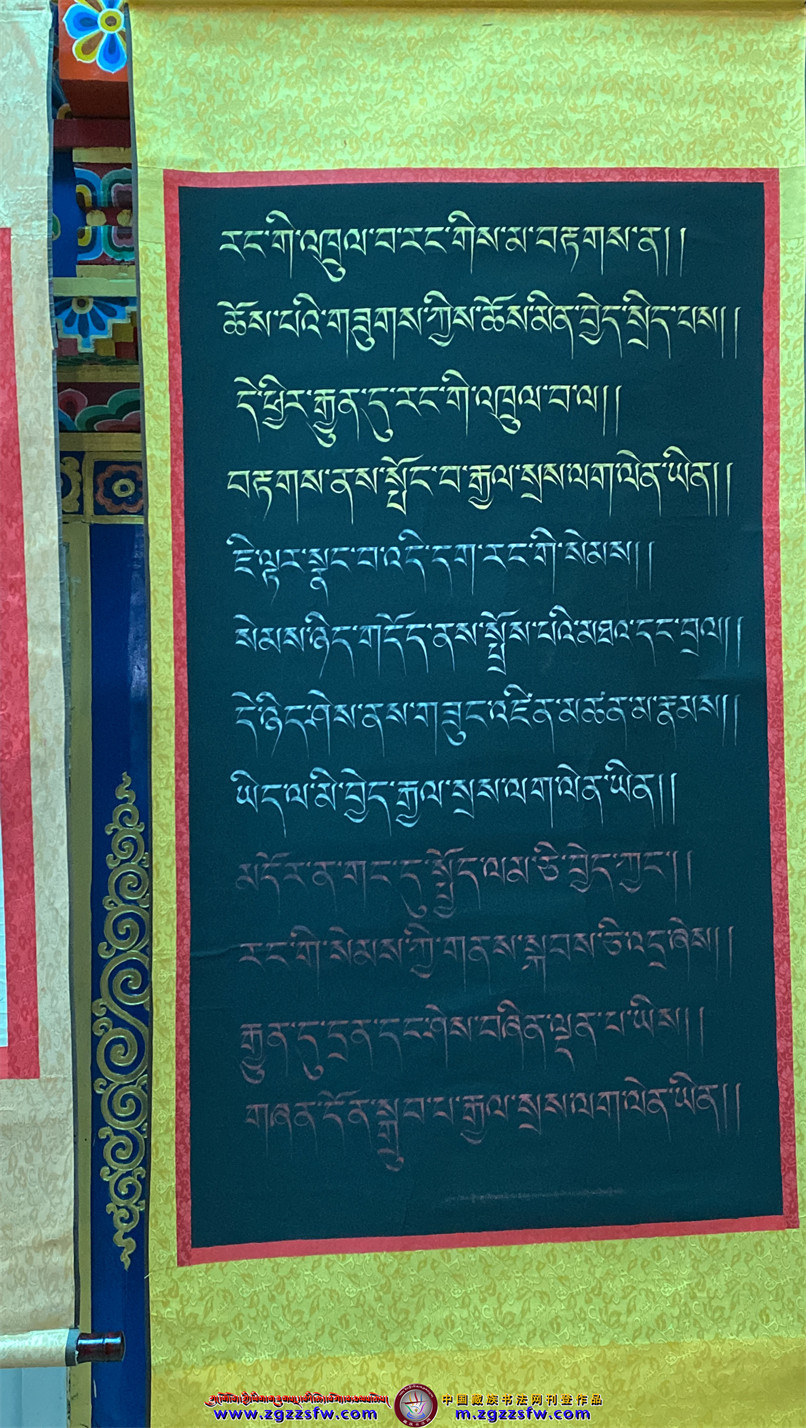 རང་གི་འཁྲུལ་བ་རང་གིས་མ་བརྟགས་ན།།
ཆོས་པའི་གཟུགས་ཀྱིས་ཆོས་མིན་བྱེད་སྲིད་པས།།
དེ་ཕྱིར་རྒྱུན་དུ་རང་གི་འཁྲུལ་བ་ལ།།
བརྟགས་ནས་སྤོང་བ་རྒྱལ་སྲས་ལག་ལེན་ཡིན།།
ཇི་ལྟར་སྣང་བ་འདི་དག་རང་གི་སེམས།།
སེམས་ཉིད་གདོད་ནས་སྤྲོས་པའི་མཐའ་དང་བྲལ།།
དེ་ཉིད་ཤེས་ནས་གཟུང་འཛིན་མཚན་མ་རྣམས།།
ཡིད་ལ་མི་བྱེད་རྒྱལ་སྲས་ལག་ལེན་ཡིན།།
མདོར་ན་གང་དུ་སྤྱོད་ལམ་ཅི་བྱེད་ཀྱང་།།
རང་གི་སེམས་ཀྱི་གནས་སྐབས་ཅི་འདྲ་ཞེས།།
རྒྱུན་དུ་དྲན་དང་ཤེས་བཞིན་ལྡན་པ་ཡིས།།
གཞན་དོན་སྒྲུབ་པ་རྒྱལ་སྲས་ལག་ལེན་ཡིན།།
中国藏族书法网刊登作品
www.zgzzsfw.com m.zgzzsfw.com